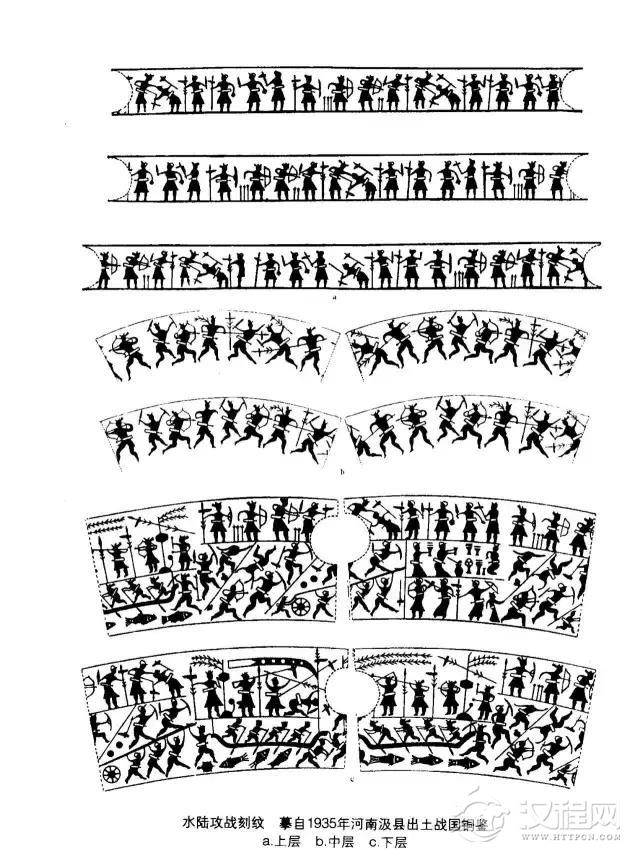 a
b
c
水陆攻战刻纹 摹自1935年河南汲县出土战国铜鉴
a.上层 b.中层 c.下层
汉程网
WWW.HTTPCN.COM